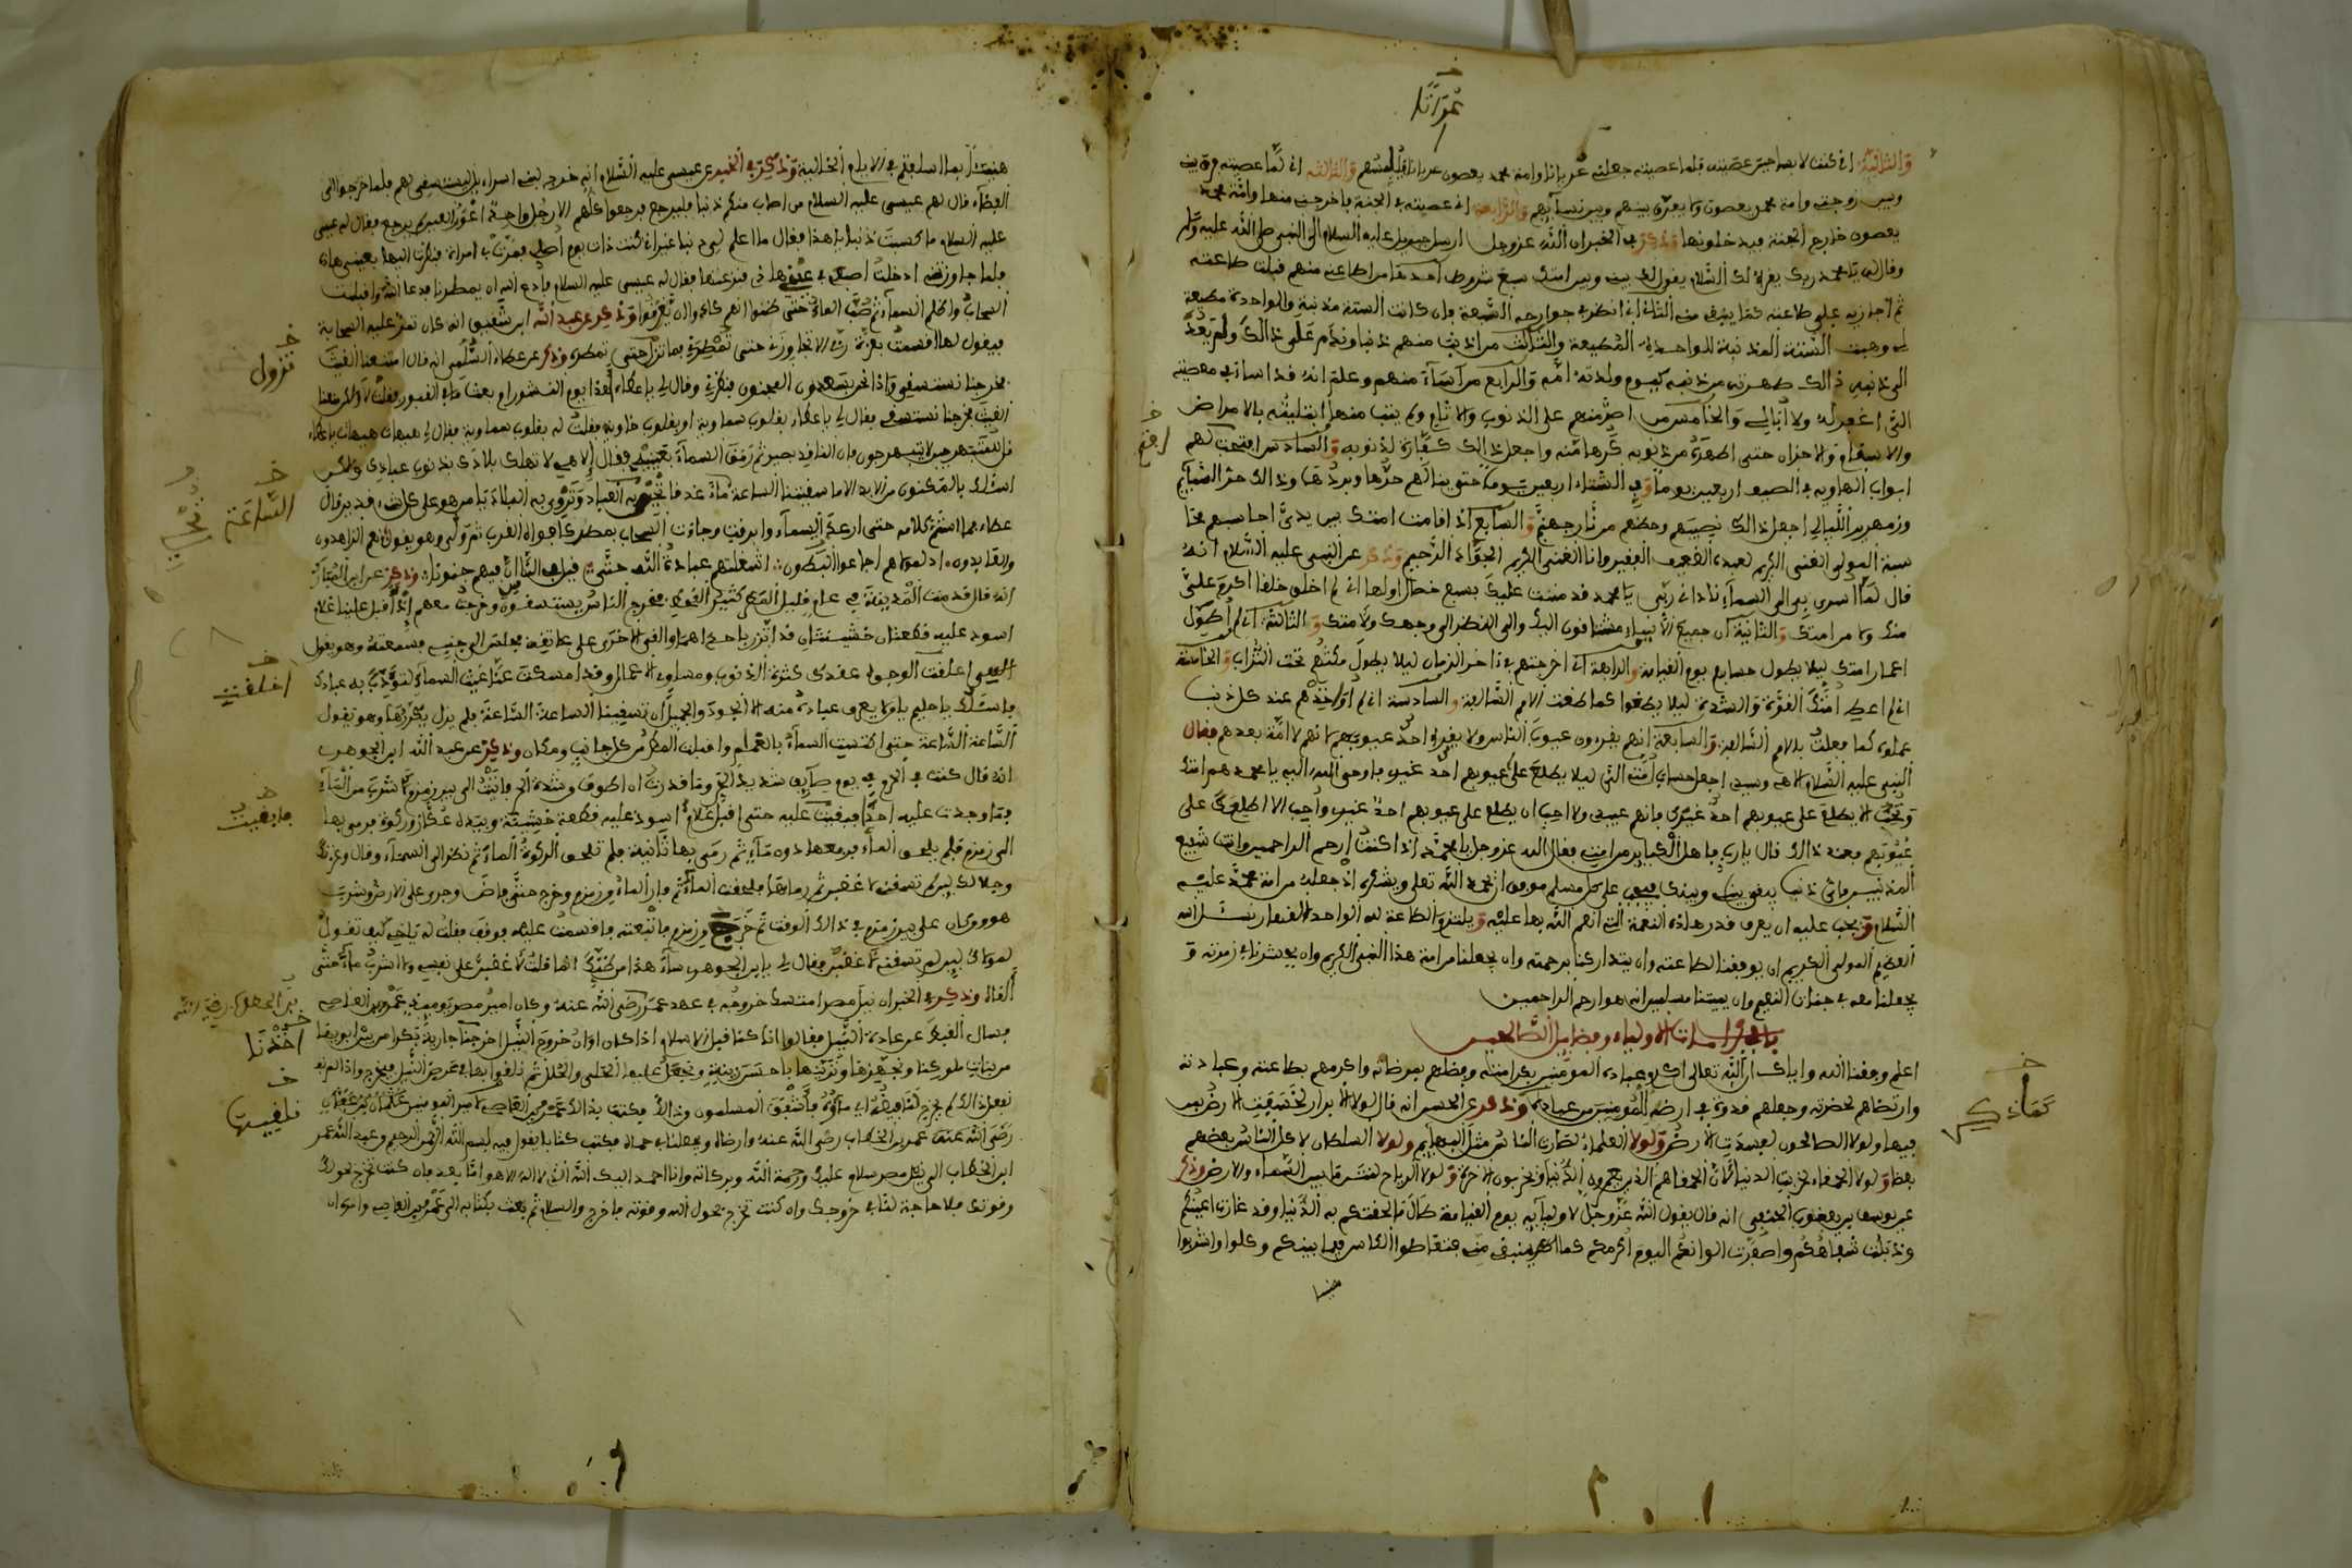 عُرْيَانًا
والثانية اني كنت لابسا حين عصيته فلما عصيته جعلني عريانا وامة محمد يعصون عريانا فيلبسهم والثالثة اني لما عصيته فرق بيني
وبين زوجتي وامة محمد يعصون ولا يفرق بينهم وبين نسآيهم والرابعة اني عصيته في الجنة فاخرجني منها وامة محمد
يعصون خارج الجنة فيدخلونها وذكر في الخبر ان الله عز وجل ارسل جبريل عليه السلام الى النبي صلى الله عليه وسلم
وقال له يا محمد ربك يقرءك السلام يقول لك بيني وبين امتك سبع شروط احدها من اطاعني منهم قبلت طاعته
ثم اجازيه على طاعته كما ينبغي مني الثاني اني انظر في جوارحه السبعة فان كانت الستة مذنبة والواحدة مطيعة
وهبت الستة المذنبة للواحدة المطيعة والثالث من اذنب منهم ذنبا وندم على ذالك ولم يعد
الى ذنبه ذالك طهرته من ذنبه كيوم ولدته امه والرابع من اسآء منهم وعلم انه قد اساء في معصيته
اني اغفر له ولا ابالي والخامس من اصر منهم على الذنوب والاثام ولم يتب منها ابتليته بالامراض
والاسقام والاحزان حتى اطهره من ذنوبه كرها منه واجعل ذالك كفارة لذنوبه والسادس افتح لهم
ابواب الهاوية في الصيف اربعين يوما وفي الشتاء اربعين يوما حتى ينالهم حرها وبردها وذالك حر السمآيم
وزمهرير الليالي اجعل ذالك نصيبهم وحظهم من نار جهنم والسابع اذا قامت امتك بين يدي احاسبهم محا
سبة المولى الغني الكريم لعبده الضعيف الفقير وانا الغني الكريم الجواد الرحيم وذكر عن النبي عليه السلام انه
قال لما اسري بي الى السمآء ناداني ربي يا محمد قد مننت عليك بسبع خصال اولها اني لم اخلق خلقا اكرم علي
منك ولا من امتك والثانية ان جميع الانبياء مشتاقون اليك والى النظر الى وجهك ولامتك والثالثة اني لم اطول
اعمار امتك ليلا يطول حسابهم يوم القيامة والرابعة اني اخرجتهم في اخر الزمان ليلا يطول مكثهم تحت التراب والخامسة
اني لم اعط امتك القوة والشدة ليلا يطغوا كما طغت الامم السالفة والسادسة اني لم اواخذهم عند كل ذنب
عملوه كما فعلت بالامم السالفة والسابعة انهم يقرءون عيوب الناس ولا يقرءوا احد عيوبهم لانهم لا امة بعدهم فقال
النبي عليه السلام الاهي وسيدي اجعل حساب امتي الي ليلا يطلع على عيوبهم احد غيري فاوحى الله اليه يا محمد هم امتك
وتحب الا يطلع على عيوبهم احد غيرك فانهم عبيدي ولا احب ان يطلع على عيوبهم احد غيري
عيوبهم فعند ذالك قال يا رب ما هل الكباير من امتي فقال الله عز وجل يا محمد اذا كنت ارحم الراحمين وانت شفيع
المذنبين
السلام ويجب عليه ان يعرف قدر هاذه النعمة التي انعم الله بها عليه ويلتزم الطاعة لله الواحد القهار نسئل الله
العظيم المولى الكريم ان يوفقنا لطاعته وان يتداركنا برحمته وان يجعلنا من امة هذا النبي الكريم وان يحشرنا في زمرته و
يجعلنا معه في جنات النعيم وان يميتنا مسلمين انه هو ارحم الراحمين
باب في كرامات الاولياء وفضايل الصالحين
اعلم وفقنا الله واياك ان الله تعالى اكرم عباده المومنين بكرامته وفضلهم بمرضاته واكرمهم بطاعته وعبادته
وارتضاهم لحضرته وجعلهم قدوة في ارضه للمومنين من عباده وذكر عن الحسن انه قال لولا الابرار لخسفت الارض بمن
فيها ولولا الصالحون لفسدت الارض ولولا العلماء لصارت الناس مثل البهايم ولولا السلطان لاكل الناس بعضهم
بعضا ولولا الحمقاء لخربت الدنيا لان الحمقاهم الذين يعمرون الدنيا ويخربون الاخرة ولولا الرياح لنتن ما بين السماء والارض وذكر
عن يوسف بن يعقوب الحنفي انه قال يقول الله عز وجل لاوليآيه يوم القيامة طال ما لحظتكم به الدنيا وقد غارت اعينكم
وذبلت شفاهكم واصفرت الوانكم اليوم اكرمكم كما ينبغي مني فتعاطوا الكاس فيما بينكم وكلوا واشربوا
هنيـ
هنيئا بما اسلفتم في الايام الخالية وذكر في الخبر عن عيسى عليه السلام انه خرج ببني اسراءيل ليستسقي لهم فلما خرجوا الى
الفضآء قال لهم عيسى عليه السلام من اصاب منكم ذنبا فليرجع فرجعوا كلهم الا رجل واحد اعور العين لم يرجع فقال له عيسى
عليه السلام ما كسبت ذنبا يا هذا فقال ما اعلم لي ذنبا غير اني كنت ذات يوم اصلي فمرت بي امراة فنظرت اليها بعيني هاذه
فلما جاوزتني ادخلت اصبعي في عيني فنزعتها فقال له عيسى عليه السلام فادع الله ان يمطرنا فدعا الله واقبلت
السحاب واظلم السمآء ثم صب المآء حتى ظنوا انهم كادوا ان يغرقوا وذكر عن عبد الله ابن شقيق انه كان تمر عليه السحابة
فيقول لها اقسمت بعزة ربي الا تجاوزني حتى تمطري فما تزال حتى تمطر وذكر عن عطاء السلمي انه قال امتنعنا الغيث
فخرجنا نستسقي واذا نحن بسعدون المجنون فنظرني وقال لي يا عطاء اهذا يوم النشور ام بعث ما في القبور فقلت لا ولكن منعنا
الغيث فخرجنا نستسقي فقال لي يا عطاء بقلوب سماوية او بقلوب خاوية فقلت له بقلوب سماوية فقال لي هيهات هيهات يا عطاء
قل للمتبهرجين لا تتبهرجون فان الناقد بصير ثم رمق السمآء بعينيه وقال الاهي لا تهلك بلادك بذنوب عبادك ولاكن
اسئلك بالمكنون من الايه الا ما سقيتنا الساعة مآء غدقا تحيي به العباد وتروي به البلاد يا من هو على كل شيء قدير قال
عطاء فما استتم كلامه حتى ارعدت السمآء وابرقت وجاءت السحاب بمطر كافواه القرب ثم ولى وهو يقول نعم الزاهدون
والعابدون اذ لمولاهم اجاعوا البطون اشغلتهم عبادة الله حتى قيل في الناس ان فيهم جنونا وذكر عن ابن المبارك
انه قال قدمت المدينة في عام قليل المطر كثير القحط فخرج الناس يستسقون وخرجت معهم اذ اقبل علينا غلام
اسود عليه قطعتان خشينتان قد اتزر باحداهما والقى الاخرى على عاتقه فجلس الى جنبي فسمعته وهو يقول
الهي اخلقت الوجوه عندك كثرة الذنوب ومساوي الاعمال وقد امسكت عنا غيث السمآء لتودب به عبادك
فاسئلك يا حليم يا من لا يعرف عباده منه الا الجود والجميل ان تسقينا الساعة الساعة فلم يزل يكررها وهو يقول
الساعة الساعة حتى اكتست السمآء بالغمام واقبلت المطر من كل جانب ومكان وذكر عن عبد الله ابن الجوهري
انه قال كنت في الحرم في يوم صآيف شديد الحر وما قدرت ان اطوف من شدة الحر فاتيت الى بير زمزم لاشرب من المآء
فما وجدت عليه احدا فبقيت عليه حتى اقبل غلام اسود عليه قطعة خشينة وبيده عكاز وركوة فرمى بها
الى زمزم فلم يلحق المآء فرفعها دون مآء ثم رمى بها ثانية فلم تلحق الركوة المآء ثم نظر الى السمآء وقال وعزتك
وجلالك لين لم تسقني لاغضبن ثم رماها فلحقت المآء ثم فار المآء من زمزم وخرج حتى فاض وجرى على الارض وشرب
هو ومن كان على بير زمزم في ذالك الوقت ثم خرج من زمزم فاتبعته فاقسمت عليه فوقف فقلت له يا اخي كيف تقول
لمولاك لين لم تسقني لاغضبن فقال لي يا ابن الجوهري سآء هذا من ظنك انما قلت لاغضبن على نفسي ولا اشرب مآء حتى
القاه وذكر في الخبر ان نيل مصر امتسك خروجه في عهد عمر رضي الله عنه وكان امير مصر يوميذ عمرو بن العاصي
فسال القبط عن عادة النيل فقالوا انا كنا قبل الاسلام اذا كان اوان خروج النيل اخرجنا جارية بكرا من بين ابويها
من بنات ملوكنا ونجهزها ونزينها باحسن زينة ونجعل عليها الحلي والحلل ثم نلقوا بها في عرض النيل فيخرج واذا لم
نفعل ذالك لم يخرج لنا فيقف اي مآؤه فاشفق المسلمون من ذالك فكتب بذالك عمرو بن العاصي لامير المومنين عمر بن
رضي الله عنه عمر بن الخطاب رضي الله عنه وارضاه وجعلنا في حماه فكتب كتابا يقول فيه بسم الله الرحمن الرحيم من عبد الله عمر
ابن الخطاب الى نيل مصر سلام عليك ورحمة الله وبركاته وانا احمد اليك الله الذي لا اله الا هو اما بعد فان كنت تخرج بحولك
وقوتك فلا حاجة لنا في خروجك وان كنت تخرج بحول الله وقوته فاخرج والسلام ثم بعث بكتابه الى عمرو بن العاصي وامره ان
نزول
السَّاعَة
اخلقت
فابقيت
اخذنا